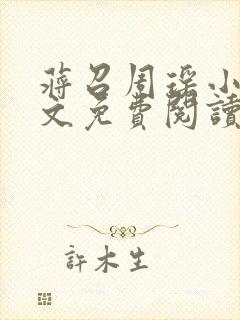 蔣召周瑶小
文免費閱讀
許木生